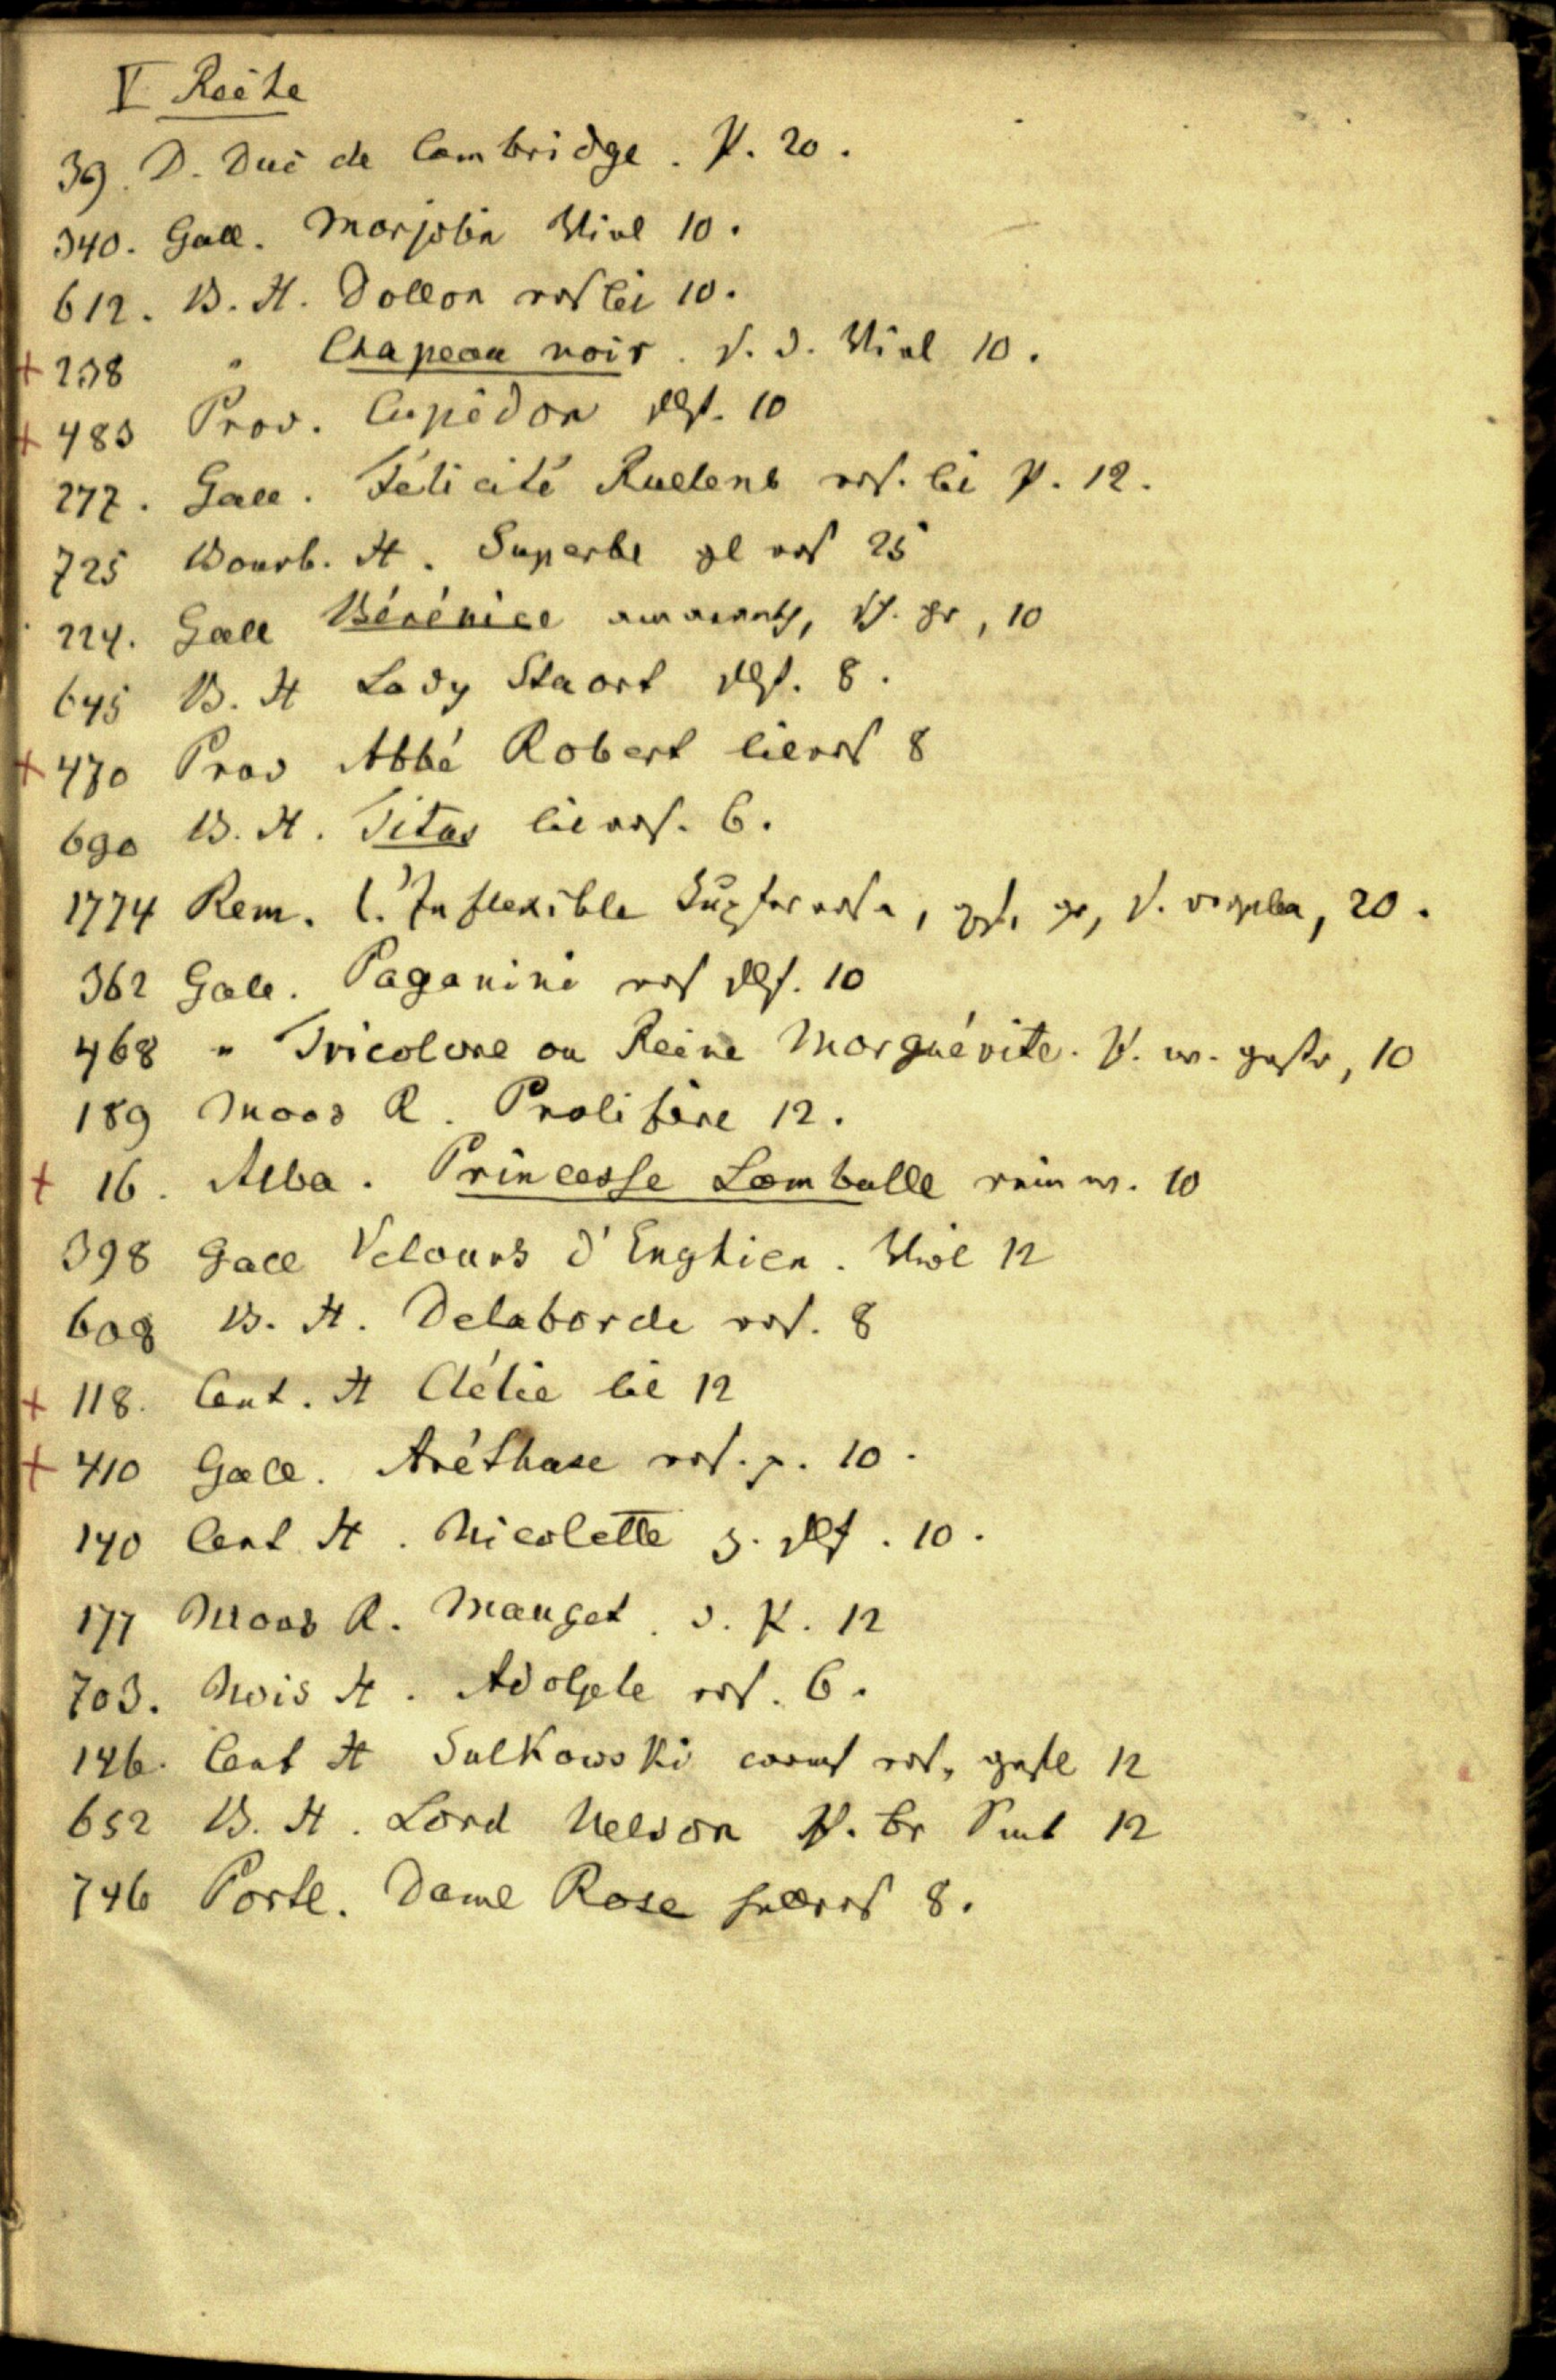 V Reihe
39. D. Duc de Cambridge. P. 20.
340. Gall. Marjolin Viol 10.
612. B. H. Dollon ros lil 10.
+ 238 " Chapeau noir. s. d. Viol 10.
+ 483 Prov. Cupidon flsf. 10
277. Gall. Félicité Ruelens ros. lil P. 12.
725 Bourb. H. Superbe gl ros 25
224. Gall Bérénice amaranth, gr, 10
645 B. H Lady Stuart flsf. 8.
+ 470 Prov Abbé Robert lilros 8
690 B. H. Titus lilros. 6.
1774 Rem. l'Inflexible Kupferrosa, gr, 20.
362 Gall. Paganini ros flsf. 10
468 " Tricolore ou Reine Marguérite. P. w. gestr, 10
189 Moos R. Prolifère 12.
+ 16. Alba. Princesse Lamballe rein w. 10
398 Gall Velours d'Enghien. Viol 12
608 B. H. Delaborde ros. 8
+ 118. Cent. H Clélie lil 12
+ 410 Gall. Aréthuse ros. p. 10.
140 Cent H. Nicolette z. flsf. 10.
177 Moos R. Mauget. d. K. 12
703. Nois H. Adolphe ros. 6.
146. Cent H Sulkowski carm ros, 12
652 B. H. Lord Nelson P. br Smt 12
746 Portl. Dame Rose hellros 8.